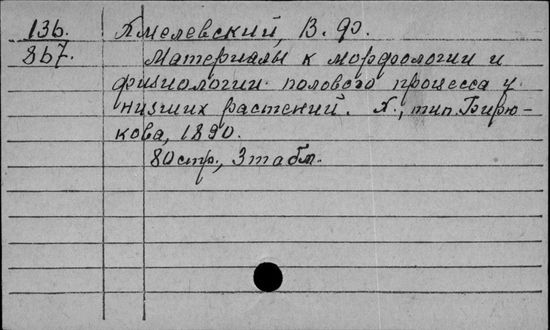 136. Хмелевский, В. Ф.
867. Материалы к морфологии и
физиологии полового процесса у
низших растений. Х., тип. Бирю-
кова, 1890.
80 стр., 3 табл.